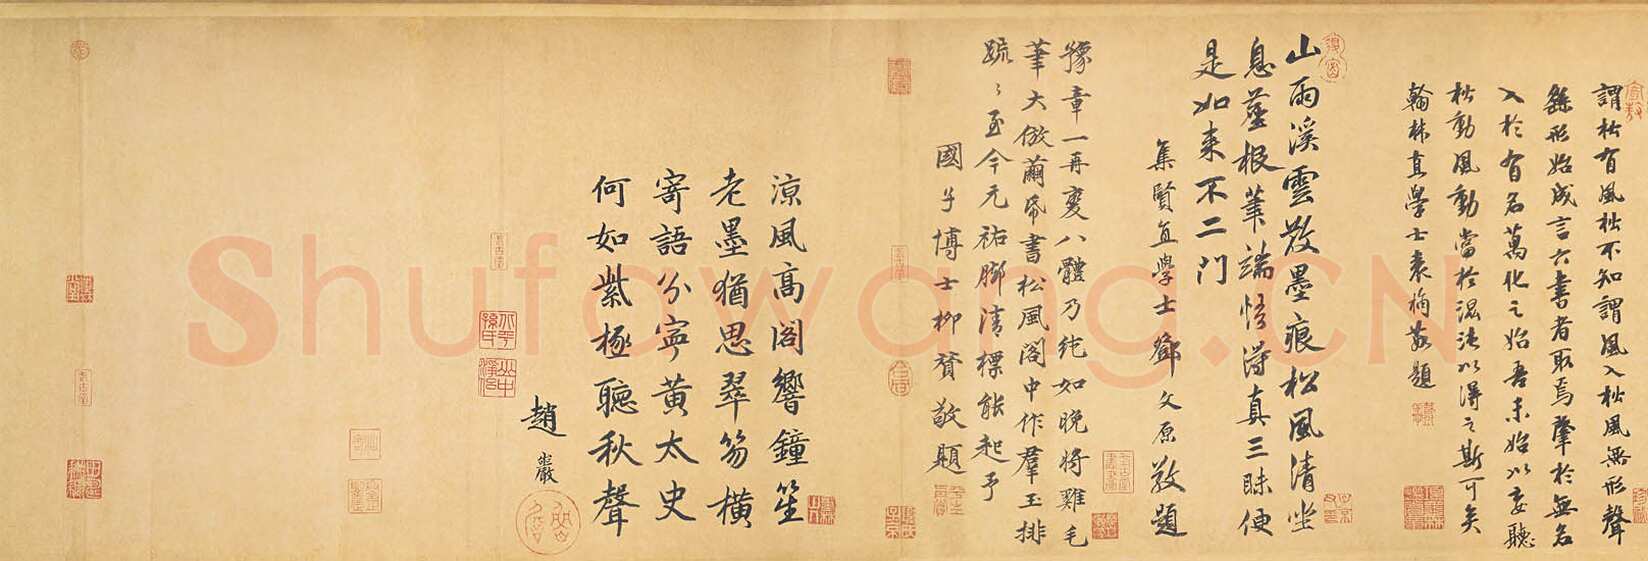 謂松有風松不知謂風入松風無形聲
繇形始成言六書者取焉肇於無名
入於有名萬化之始吾未始以妄聽
松動風動當於混沌以得之斯可矣
翰林直學士袁桷敬題
山雨溪雲散墨痕松風清坐
息塵根筆端悟得真三昧便
是如來不二門
集賢直學士鄧文原敬題
豫章一再變八體乃純如晚將雞毛
筆大倣繭帋書松風閣中作群玉排
疏々至今元祐腳清標能起予
國子博士柳贇敬題
涼風高閣響鐘笙
老墨猶思翠笏橫
寄語分寧黃太史
何如紫極聽秋聲
趙巖
Shufawang.CN